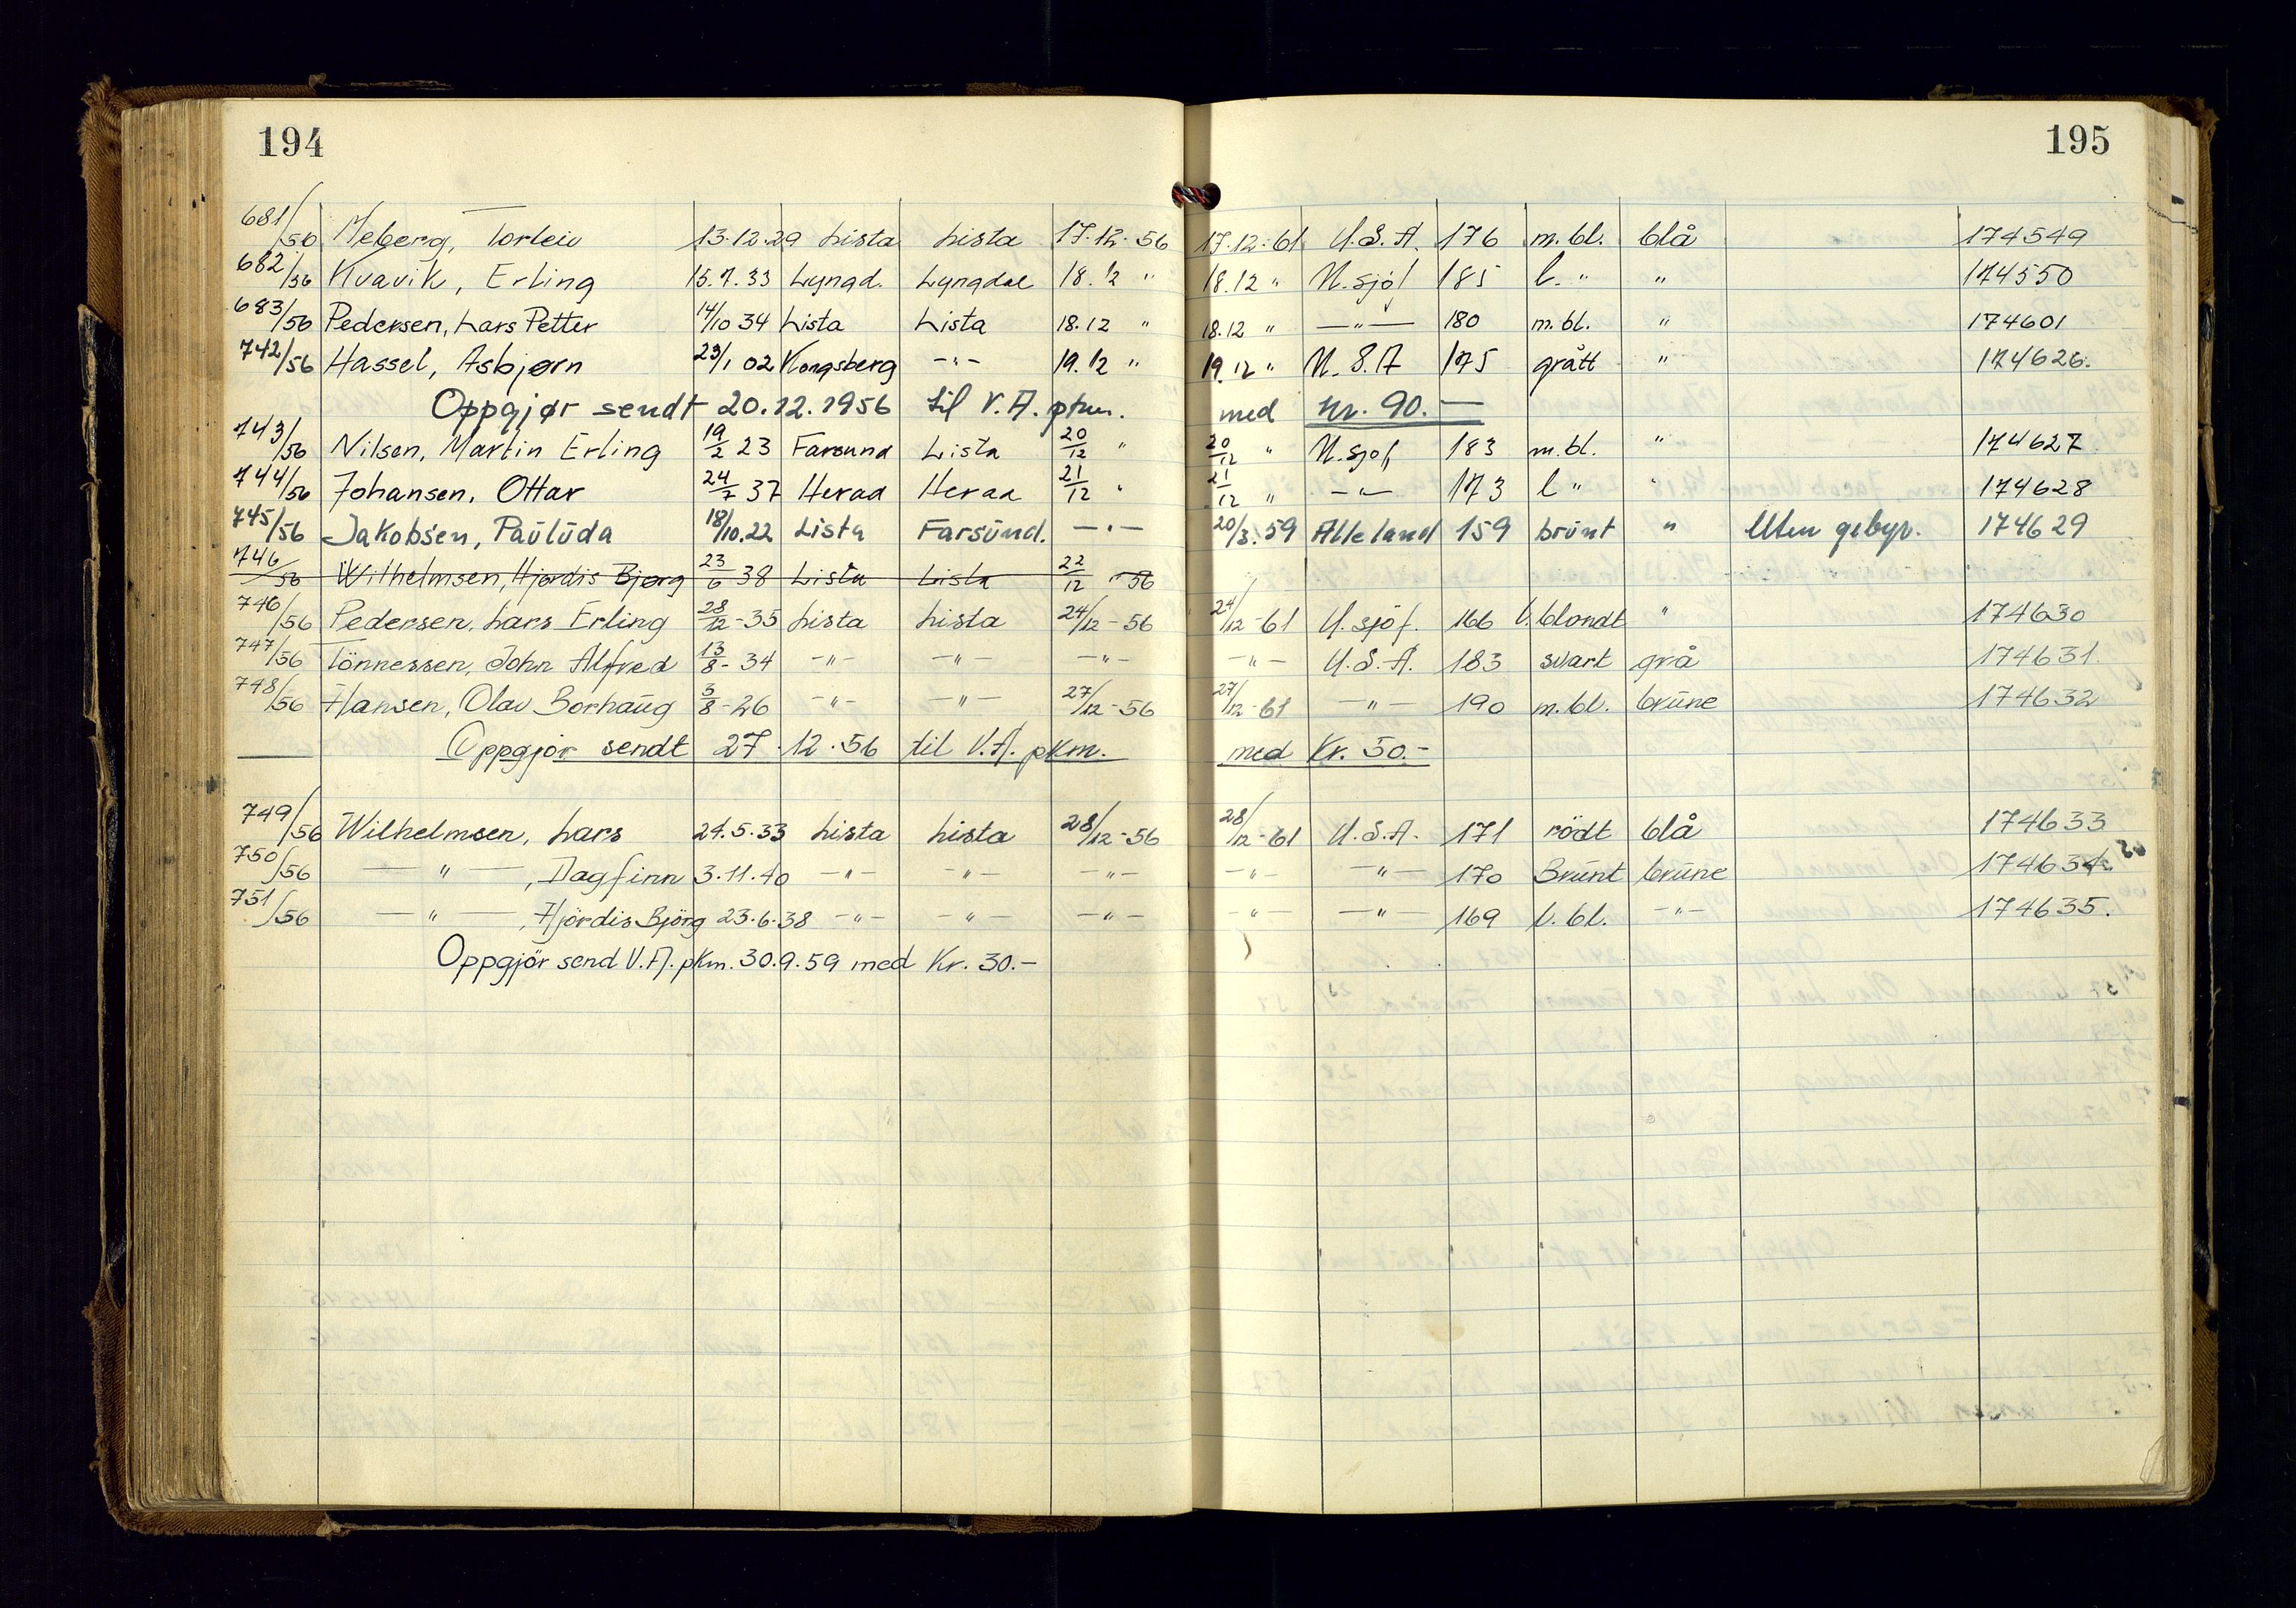 194
195
681/56 Meberg, Torleiv 13.12.29 Lista Lista 17.12.56 17.12.61 U.S.A. 176 m.bl. blå 174549
682/56 Kvavik, Erling 15.7.33 Lyngd. Lyngdal 18.12 " 18.12 " U.sjøf 185 l. " " 174550
683/56 Pedersen, Lars Petter 14/10 34 Lista Lista 18.12 " 18.12 " —"— 180 m.bl. " 174601
742/56 Hassel, Asbjørn 23/1 02 Kongsberg -"- 19.12 " 19.12 " U.S.A 175 grått " 174626.
Oppgjør sendt 20.12.1956 til V.A. pkm. med kr. 90.—
743/56 Nilsen, Martin Erling 19/2 23 Farsund Lista 20/12 " 20/12 " U.sjøf 183 m.bl. " 174627
744/56 Johansen, Ottar 24/7 37 Herad Herad 21/12 " 21/12 " —"— 173 l " " 174628
745/56 Jakobsen, Paulúda 18/10.22 Lista Farsúnd. —"— 20/3.59 Alle land 159 brúnt " Uten gebyr. 174629
746/56 Wilhelmsen, Hjørdis Bjørg 23/6 38 Lista Lista 22/12 "56
746/56 Pedersen, Lars Erling 28/12-35 Lista Lista 24/12-56 24/12-61 U.sjöf. 166 l.blondt " 174630
747/56 Tönnessen, John Alfred 13/8-34 -"- -"- -"- -"- U.S.A. 183 svart grå 174631.
748/56 Hansen, Olav Borhaúg 3/8-26 -"- -"- 27/12-56 27/12-61 -"- 190 m.bl. brúne 174632
Oppgjör sendt 27.12.56 til V.A. pkm. med Kr. 50.-
749/56 Wilhelmsen, Lars 24.5.33 Lista Lista 28/12-56 28/12-61 U.S.A. 171 rödt blå 174633
750/56 —"—, Dagfinn 3.11.40 -"- -"- -"- -"- -"- 170 Brúnt brúne 174634
751/56 —"—, Hjördis Björg 23.6.38 -"- -"- -"- -"- -"- 169 l.bl. -"- 174635.
Oppgjör send V.A. pkm. 30.9.59 med Kr. 30.-